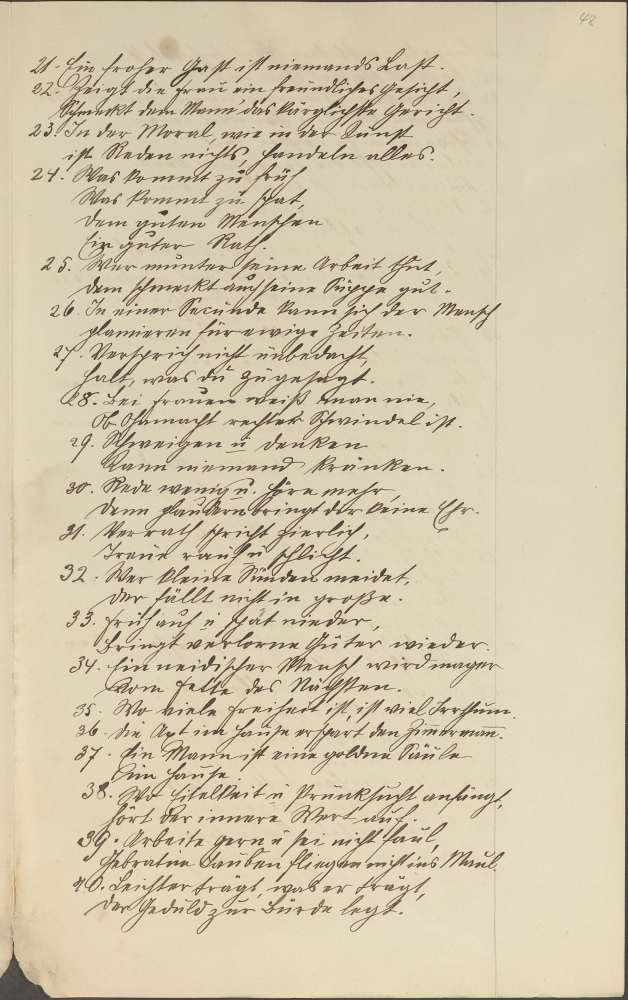 42
21. Ein froher Gast ist niemands Last.
22. Zeigt die Frau ein freundliches Gesicht,
Schmeckt dem Mann' das kärglichste Gericht.
23. In der Moral, wie in der Kunst
ist Reden nichts, Handeln alles.
24. Was kommt zu früh
Was kommt zu spat,
dem guten Menschen
Ein guter Rath.
25. Wer munter seine Arbeit thut,
dem schmeckt auch seine Suppe gut.
26. In einer Secunde kann sich der Mensch
planieren für ewige Zeiten.
27. Versprich nicht unbedacht,
Halt, was du zugesagt.
28. Bei Frauen weiß man nie,
Ob Ohnmacht rechter Schwindel ist.
29. Schweigen u denken
Kann niemand kränken.
30. Rede wenig u. höre mehr,
Denn plaudern bringt dir keine Ehr.
31. Verrath spricht zierlich,
Treue rauh u schlicht.
32. Wer kleine Sünden meidet,
der fällt nicht in große.
33. Früh auf u spät nieder,
bringt verlorne Güter wieder.
34. Ein neidischer Mensch wird mager
Vom Fette des Nächsten.
35. Wo viele Freiheit ist, ist viel Irrthum.
36. die Axt im Hause erspart den Zimmermann.
37. Ein Mann ist eine goldne Säule
Im Hause.
38. Wo Eitelkeit u Prunksucht anfängt,
hört der innere Wert auf.
39. Arbeite gern u sei nicht faul,
Gebratne Tauben fliegen nicht ins Maul.
40. Leichter trägt, was er trägt,
der Geduld zur Bürde legt.